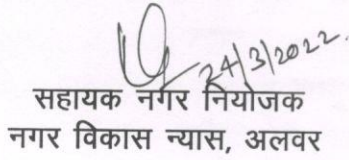 24/3/2022
सहायक नगर नियोजक
नगर विकास न्यास, अलवर